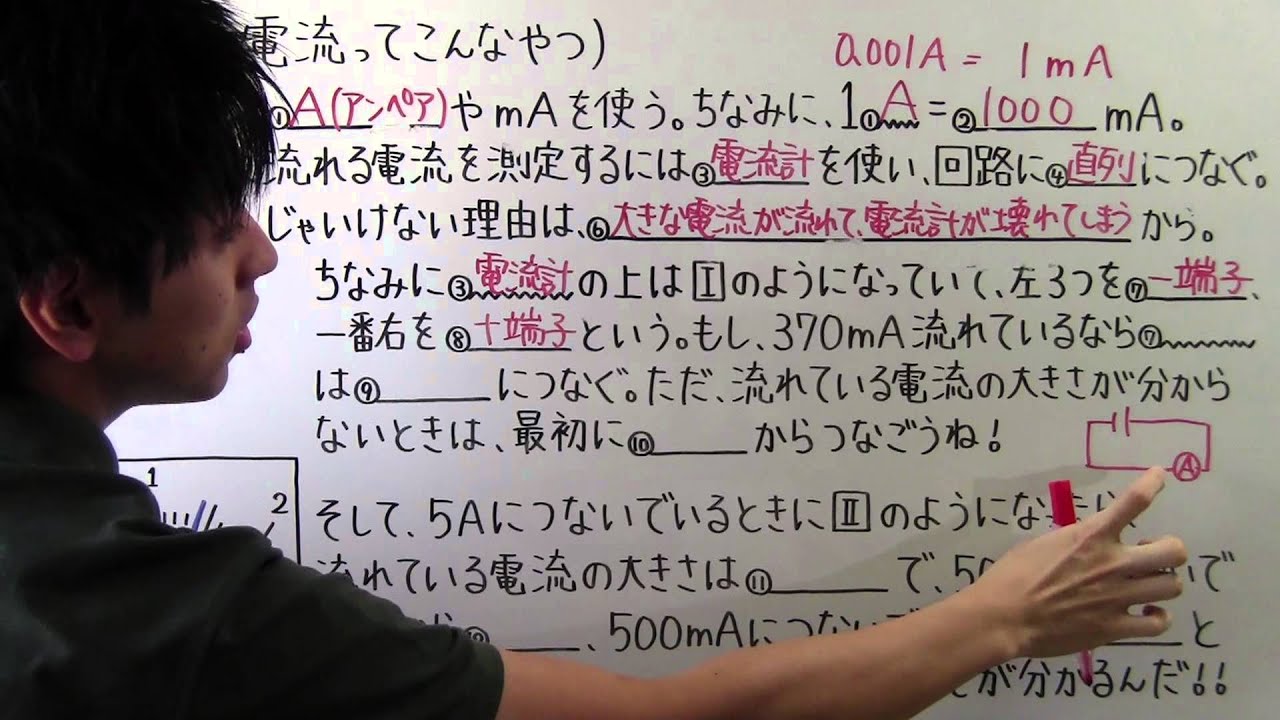 電流ってこんなやつ)
0.001A = 1mA
①A(アンペア)やmAを使う。ちなみに、1①A=②1000mA。
流れる電流を測定するには③電流計を使い、回路に④直列につなぐ。
じゃいけない理由は、⑥大きな電流が流れて、電流計が壊れてしまうから。
ちなみに③電流計の上はⅠのようになっていて、左3つを⑦－端子、
一番右を⑧＋端子という。もし、370mA流れているなら⑦
は⑨につなぐ。ただ、流れている電流の大きさが分から
ないときは、最初に⑩からつなごうね!
A
1
2
そして、5AにつないでいるときにⅡのようにな
流れている電流の大きさは⑪で、50 いで
⑫、500mAにつないで と
が分かるんだ!!